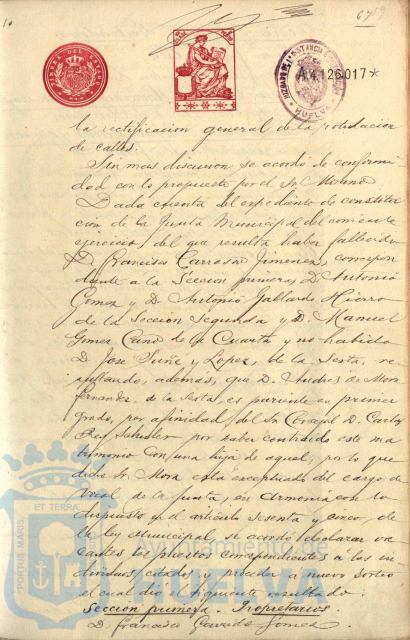 6719
A4.126.017*
TIMBRE DEL ESTADO
HUELVA
la rectificacion general de la rotulacion
de calles.
Sin mas discusion se acordó de conformi
dad con lo propuesto por el Sr. Moreno
Dada cuenta del expediente de constitu
cion de la Junta Municipal del corriente
ejercicio del que resulta haber fallecido
D. Francisco Carrasco Jimenez, correspon
diente a la Sección primera, D. Antonio
Gomez y D. Antonio Gallardo Hierro
de la Sección Segunda y D. Manuel
Gomez Cano de la Cuarta y no habido
D. Jose Suñe y Lopez, de la Sexta, re
sultando, además, que D. Andres de Mora
Fernandez de la Sexta, es pariente en primer
grado, por afinidad del Sr. Concejal D. Carlos
Rey Schuler por haber contraido este ma
trimonio con una hija de aquel, por lo que
dicho Sr. Mora está exceptuado del cargo de
vocal de la Junta, en armonía con lo
dispuesto en el artículo sesenta y cinco de
la ley Municipal, se acordó declarar va
cantes los puestos correspondientes a los in
dividuos citados y proceder a nuevo sorteo,
el cual dio el siguiente resultado.
Sección primera. Propietarios.
D. Francisco Garrido Gomez.
PORTUS MARIS ET TERRAE
Ayuntamiento de
HUELVA